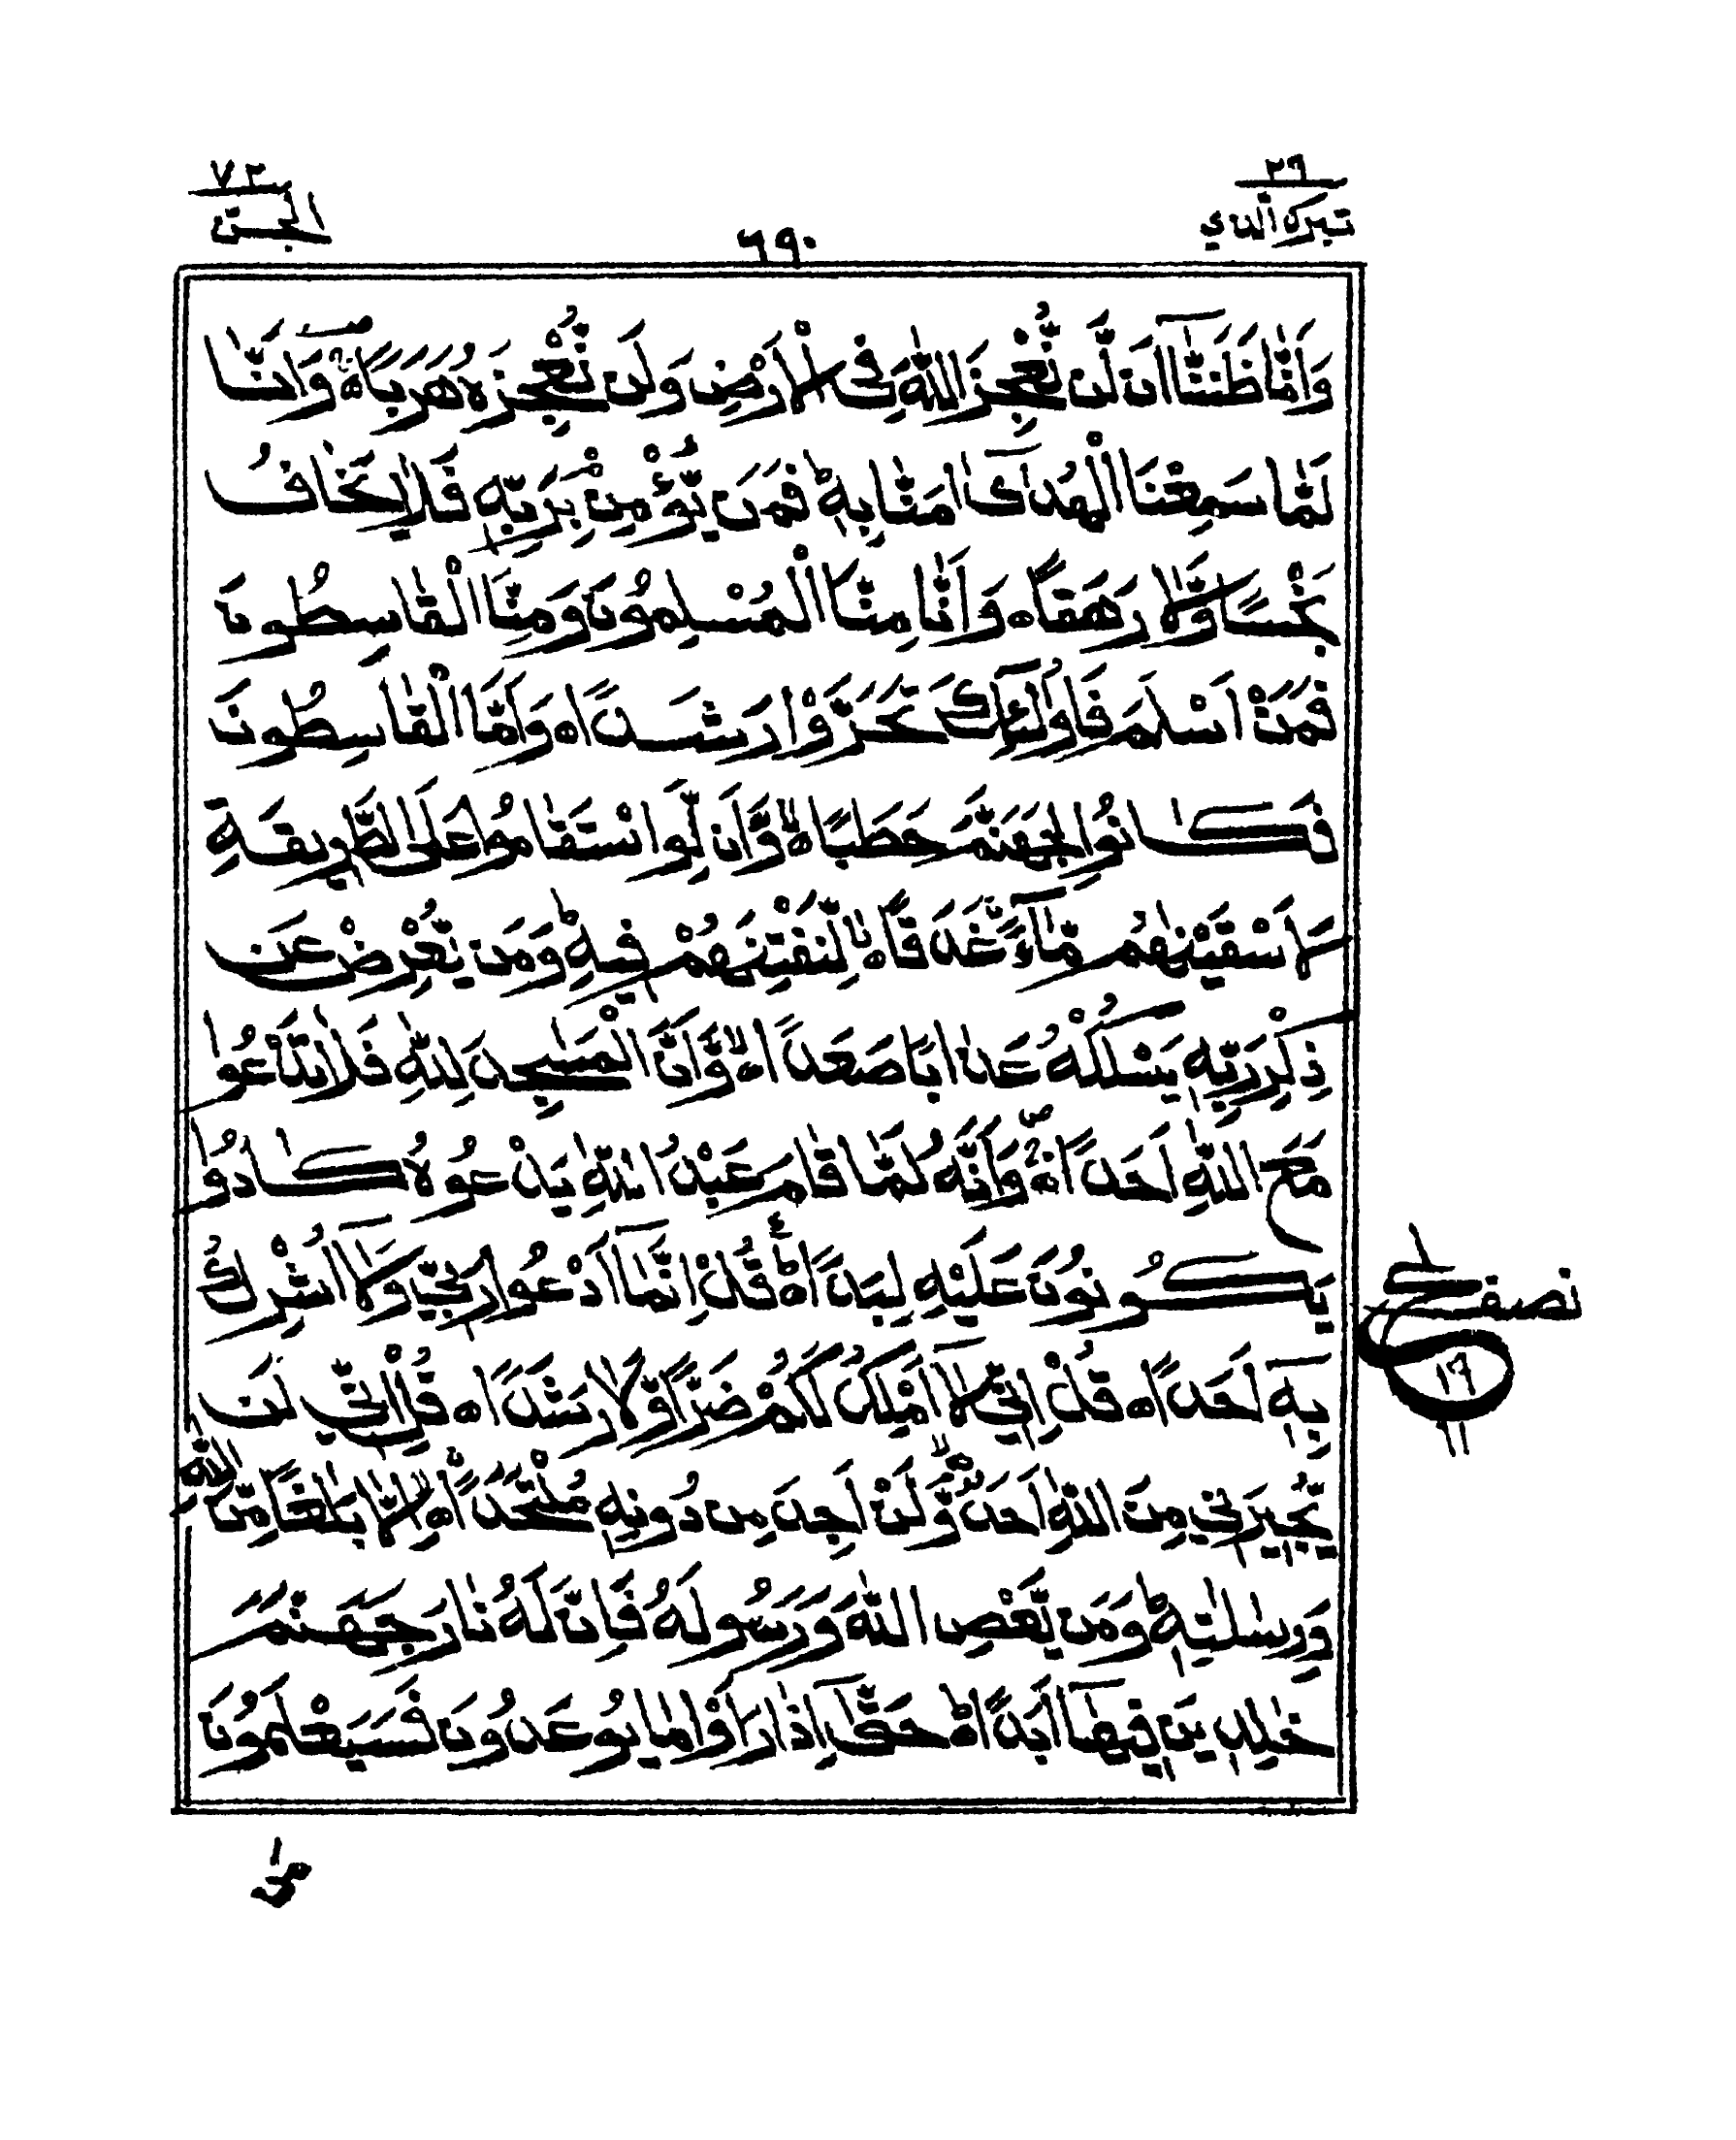 ٢٩
تبرك الذي
٦٩٠
٧٢
الجن
وَاَنَّا ظَنَنَّآ اَن لَّن نُّعْجِزَ اللّٰهَ فِى الْاَرْضِ وَلَن نُّعْجِزَهٗ هَرَبًا ۙ وَاَنَّا
لَمَّا سَمِعْنَا الْهُدٰىٓ اٰمَنَّا بِهٖ ؕ فَمَن يُّؤْمِنْۢ بِرَبِّهٖ فَلَا يَخَافُ
بَخْسًا وَّلَا رَهَقًا ه وَاَنَّا مِنَّا الْمُسْلِمُوْنَ وَمِنَّا الْقٰسِطُونَ
فَمَنْ اَسْلَمَ فَاُولٰٓئِكَ تَحَرَّوْا رَشَدًا ه وَاَمَّا الْقٰسِطُونَ
فَكَانُوا لِجَهَنَّمَ حَطَبًا ه وَّاَن لَّوِ اسْتَقَامُوا عَلَى الطَّرِيقَةِ
لَاَسْقَيْنٰهُم مَّآءً غَدَقًا ه لِّنَفْتِنَهُمْ فِيهِ ؕ وَمَن يُّعْرِضْ عَن
ذِكْرِ رَبِّهٖ يَسْلُكْهُ عَذَابًا صَعَدًا ه وَّاَنَّ الْمَسٰجِدَ لِلّٰهِ فَلَا تَدْعُوا
مَعَ اللّٰهِ اَحَدًا ه وَاَنَّهٗ لَمَّا قَامَ عَبْدُ اللّٰهِ يَدْعُوهُ كَادُوا
يَكُونُونَ عَلَيْهِ لِبَدًا ؕ قُلْ اِنَّمَآ اَدْعُوا رَبِّي وَلَآ اُشْرِكُ
بِهٖٓ اَحَدًا ه قُلْ اِنِّي لَآ اَمْلِكُ لَكُمْ ضَرًّا وَّلَا رَشَدًا ه قُلْ اِنِّي لَن
يُّجِيرَنِي مِنَ اللّٰهِ اَحَدٌ وَّلَنْ اَجِدَ مِن دُونِهٖ مُلْتَحَدًا ه اِلَّا بَلٰغًا مِّنَ اللّٰهِ
وَرِسٰلٰتِهٖ ؕ وَمَن يَّعْصِ اللّٰهَ وَرَسُولَهٗ فَاِنَّ لَهٗ نَارَ جَهَنَّمَ
خٰلِدِينَ فِيهَآ اَبَدًا ؕ حَتّٰىٓ اِذَا رَاَوْا مَا يُوعَدُونَ فَسَيَعْلَمُونَ
نصف
ع
١٩
١١